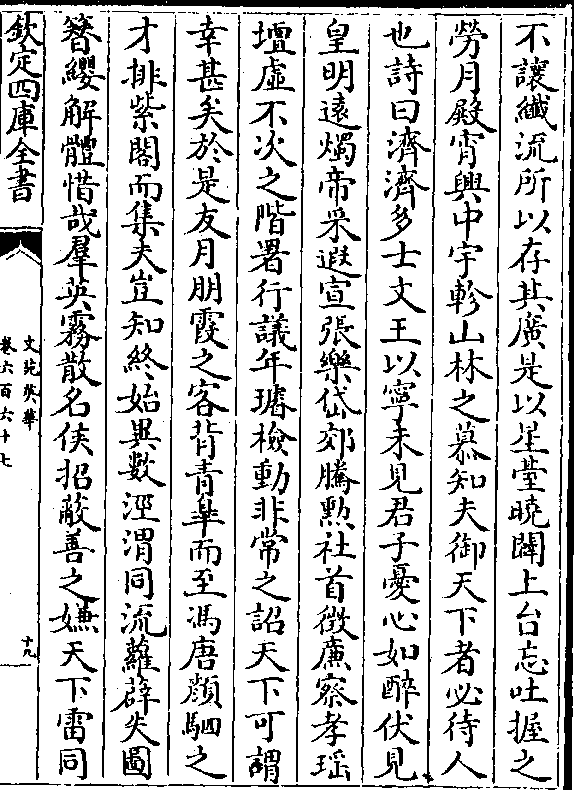 不讓纖流所以存其廣是以星臺曉闢上台忘吐握之
勞月殿宵興中宇軫山林之慕知夫御天下者必待人
也詩曰濟濟多士文王以寧未見君子憂心如醉伏見
皇明遠燭帝采遐宣張樂岱郊騰勲社首徴廉察孝瑶
壇虛不次之階署行議年璿檢動非常之詔天下可謂
幸甚矣於是友月朋霞之客背青臯而至馮唐顔駟之
才排紫閣而集夫豈知終始異數涇渭同流蘿薜失圖
簪纓解體惜哉羣英霧散名侠招蔽善之嫌天下雷同
欽定四庫全書
文苑英華
卷六百六十七
十九